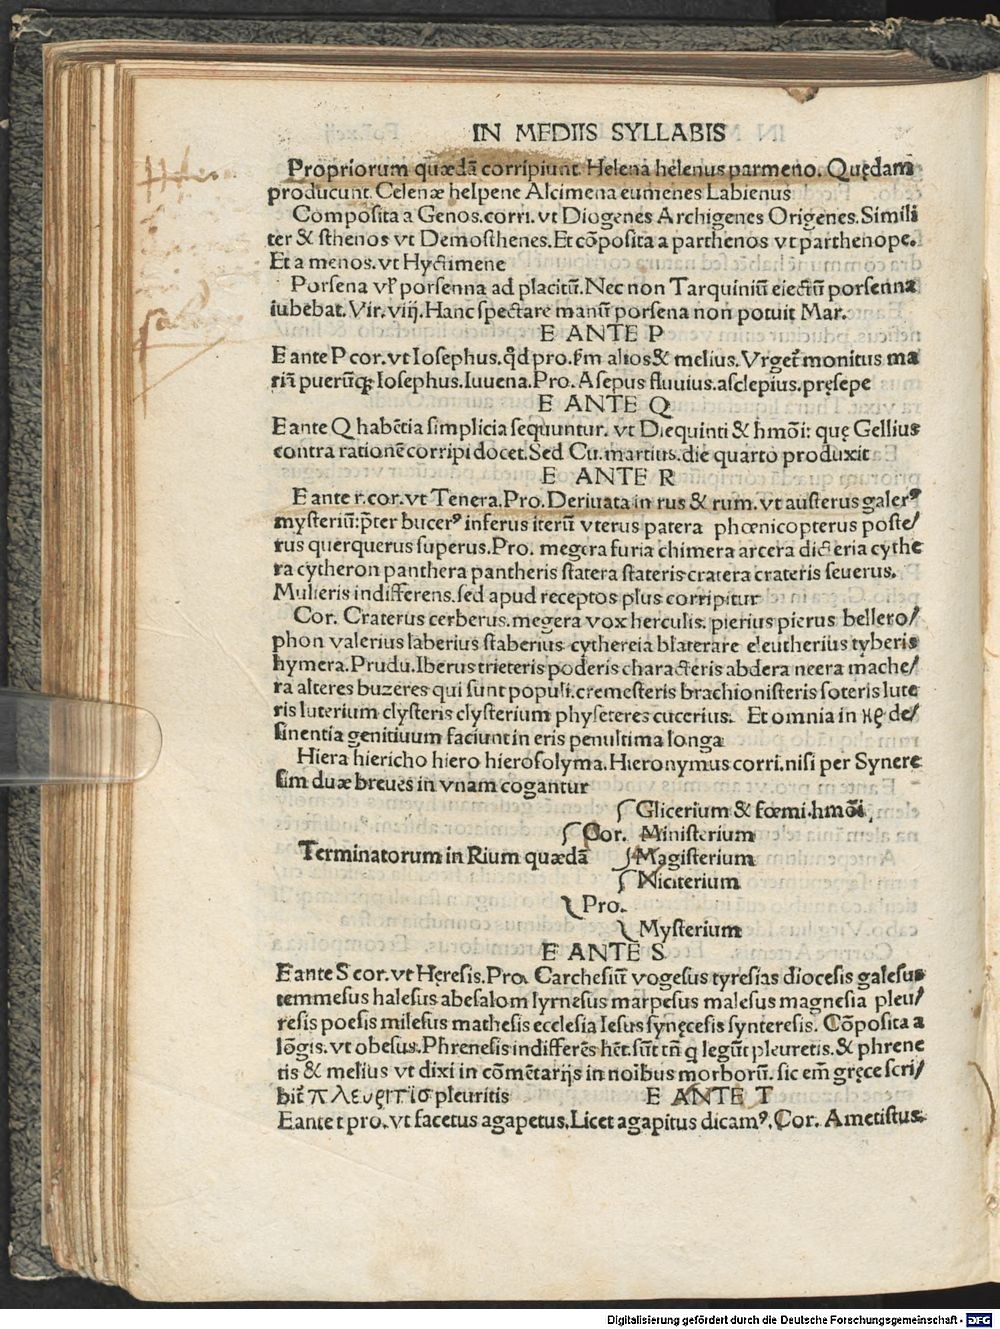 IN MEDIIS SYLLABIS
Propriorum quædā corripiunt. Helena helenus parmeno. Quędam
producunt. Celenæ helpene Alcimena eumenes Labienus
Composita a Genos.corri. vt Diogenes Archigenes Origenes. Simili
ter & sthenos vt Demosthenes. Et cōposita a parthenos vt parthenope.
Et a menos. vt Hyctimene
Porsena vl' porsenna ad placitū. Nec non Tarquiniū eiectū porsenna
iubebat. Vir. viij. Hanc spectare manū porsena non potuit Mar.
E ANTE P
E ante P cor. vt Iosephus. qd pro. fm alios & melius. Vrget monitus ma
riā puerūqꝫ Iosephus. Iuuena. Pro. Asepus fluuius. asclepius. pręsepe
E ANTE Q
E ante Q habētia simplicia sequuntur. vt Diequinti & hmōi: quę Gellius
contra rationē corripi docet. Sed Cu. martius. die quarto produxit
E ANTE R
E ante r. cor. vt Tenera. Pro. Deriuata in rus & rum. vt austerus galerꝰ
mysteriū: pter bucerꝰ inferus iterū vterus patera phœnicopterus poste/
rus querquerus superus. Pro. megera furia chimera arcera dicteria cythe
ra cytheron panthera pantheris statera stateris cratera crateris seuerus.
Mulieris indifferens. sed apud receptos plus corripitur
Cor. Craterus cerberus. megera vox herculis. pierius pierus bellero/
phon valerius laberius staberius cythereia blaterare eleutherius tyberis
hymera. Prudu. Iberus trieteris poderis characteris abdera neera mache/
ra alteres buzeres qui sunt populi. cremesteris brachionisteris soteris lute
ris luterium clysteris clysterium physeteres cucerius. Et omnia in ηρ de/
sinentia genitiuum faciunt in eris penultima longa
Hiera hiericho hiero hierosolyma. Hieronymus corri. nisi per Synere
sim duæ breues in vnam cogantur
Glicerium & fœmi. hmōi
Cor. Ministerium
Terminatorum in Rium quædā Magisterium
Niciterium
Pro.
Mysterium
E ANTE S
E ante S cor. vt Hęresis. Pro. Carchesiū vogesus tyresias diocesis galesus
temmesus halesus abesalom lyrnesus marpesus malesus magnesia pleu/
resis poesis milesus mathesis ecclesia Iesus synęcesis synteresis. Cōposita a
lōgis. vt obesus. Phrenesis indifferēs hēt. sūt tn̄ q legūt pleuretis. & phrene
tis & melius vt dixi in cōmētarijs in noībus morborū. sic em̄ gręce scri/
bit πλευριτις pleuritis E ANTE T
E ante t pro. vt facetus agapetus. Licet agapitus dicamꝰ. Cor. Ametistus.
Digitalisierung gefördert durch die Deutsche Forschungsgemeinschaft - DFG